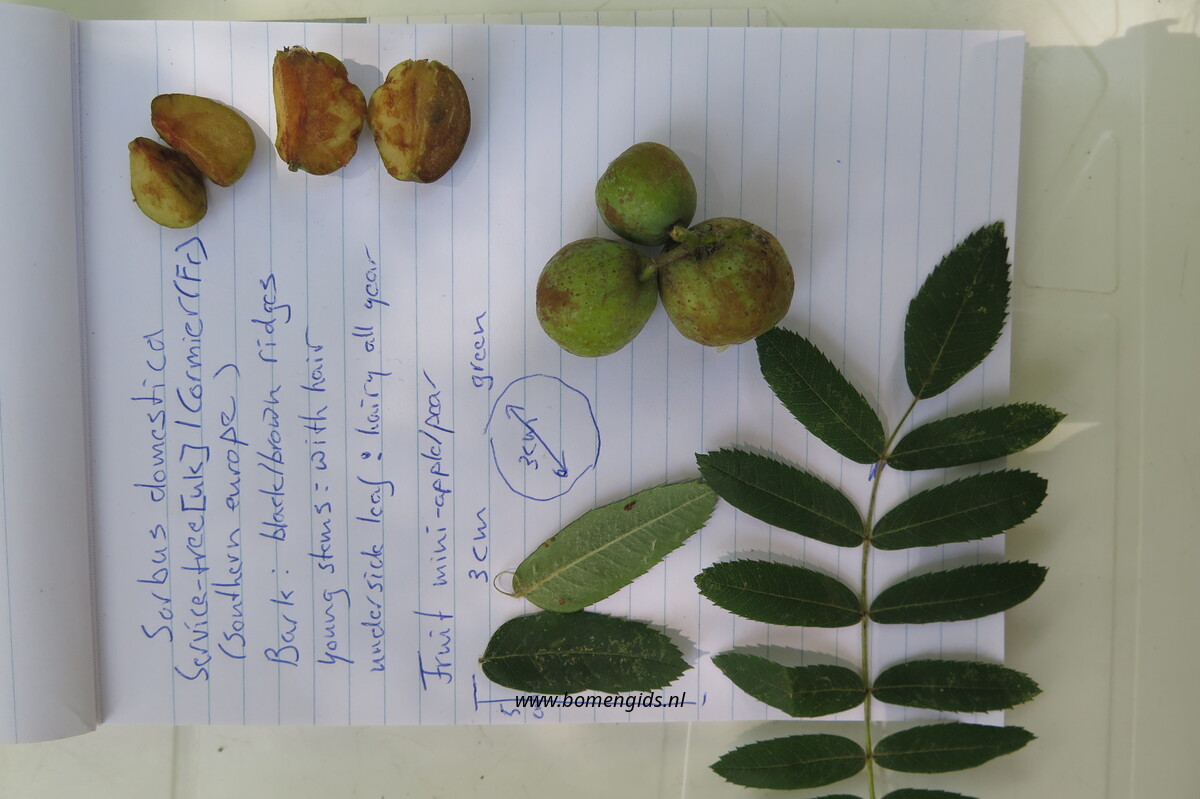 Sorbus domestica
Service-tree [uk] / Cormier (Fr)
(Southern europe)
Bark : black/brown ridges
young stems : with hair
underside leaf : hairy all year
Fruit mini-apple/pear
3cm green
3cm
5
www.bomengids.nl